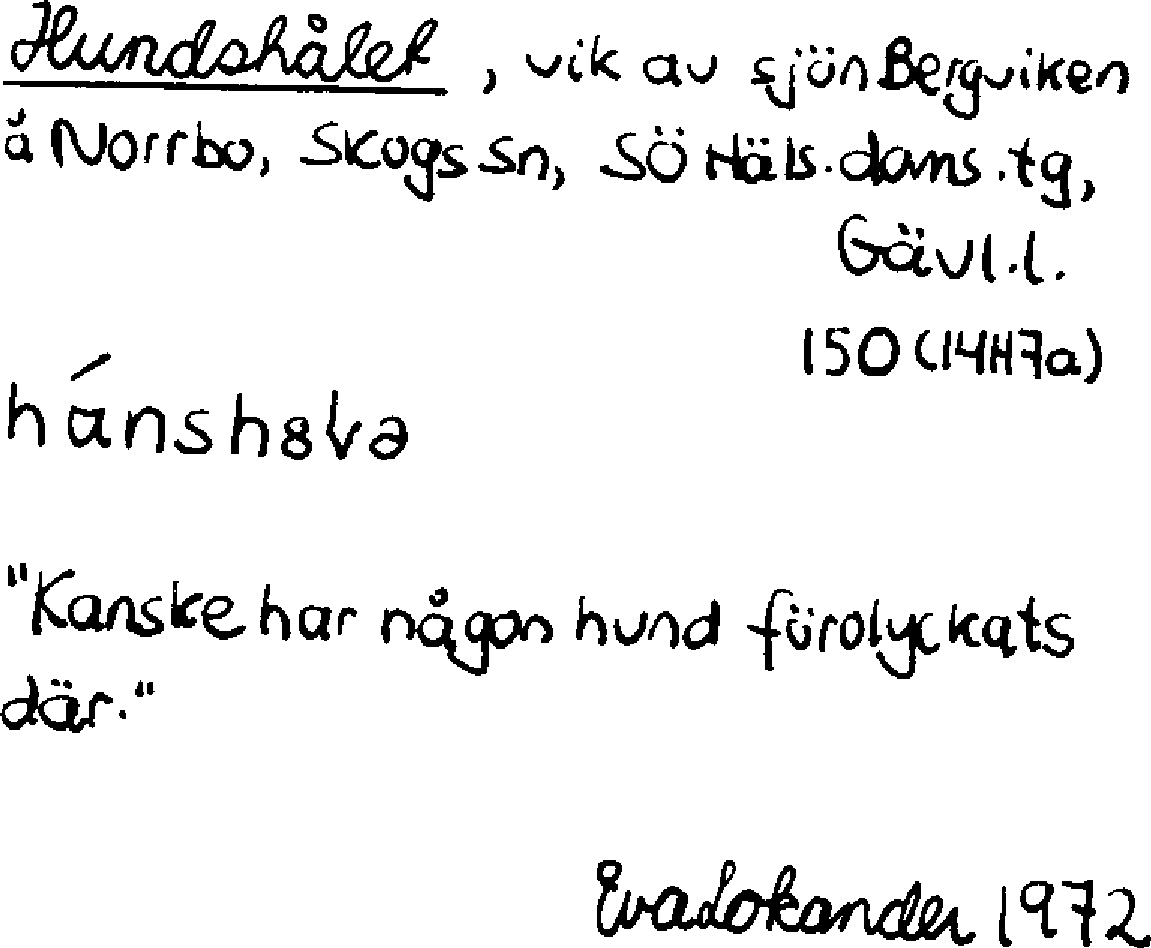 Hundshålet, vik av sjön Bergviken
å Norrbo, Skogs sn, SÖ Häls. doms. tg,
Gävl. l.
150 (14H7a)
"Kanske har någon hund förolyckats
där."
Eva Lokander 1972